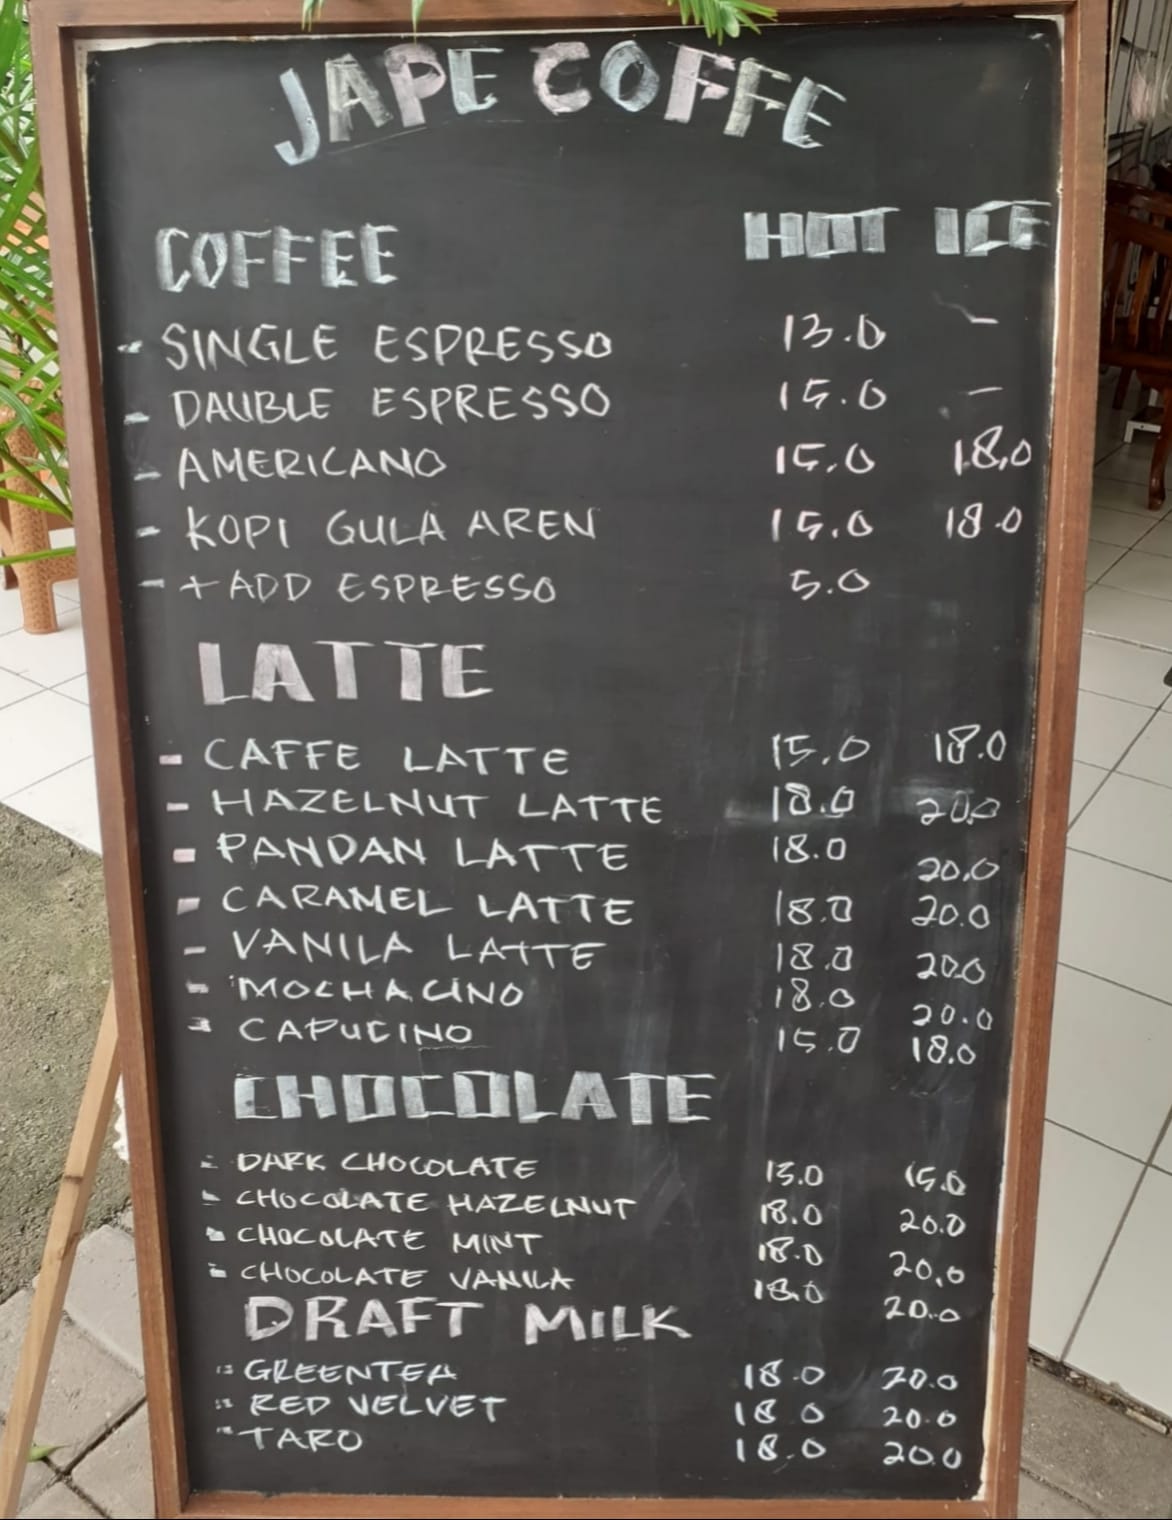 JAPE COFFE
COFFEE HOT ICE
- SINGLE ESPRESSO 13.0 -
- DAUBLE ESPRESSO 15.0 -
- AMERICANO 15.0 18.0
- KOPI GULA AREN 15.0 18.0
- + ADD ESPRESSO 5.0
LATTE
- CAFFE LATTE 15.0 18.0
- HAZELNUT LATTE 18.0 20.0
- PANDAN LATTE 18.0 20.0
- CARAMEL LATTE 18.0 20.0
- VANILA LATTE 18.0 20.0
- MOCHACINO 18.0 20.0
- CAPUCINO 15.0 18.0
CHOCOLATE
- DARK CHOCOLATE 15.0
- CHOCOLATE HAZELNUT 18.0 20.0
- CHOCOLATE MINT 18.0 20.0
- CHOCOLATE VANILA 18.0 20.0
DRAFT MILK
- GREENTEA 18.0 20.0
- RED VELVET 18.0 20.0
- TARO 18.0 20.0